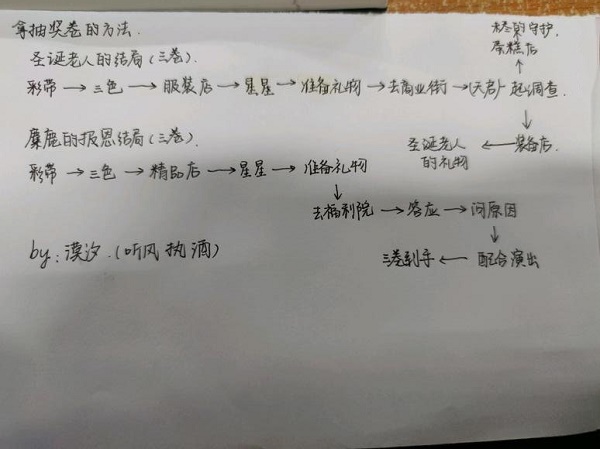 拿抽奖卷的方法.
圣诞老人的结局(三卷).
彩带→三色→服装店→星星→准备礼物→去商业街→(天启)一起调查.
的守护
蛋糕店
装备店.
圣诞老人
的礼物
麋鹿的报恩结局(三卷).
彩带→三色→精品店→星星→准备礼物
去福利院→答应→问原因
三卷到手←配合演出
by:漠汐.(听风执酒)